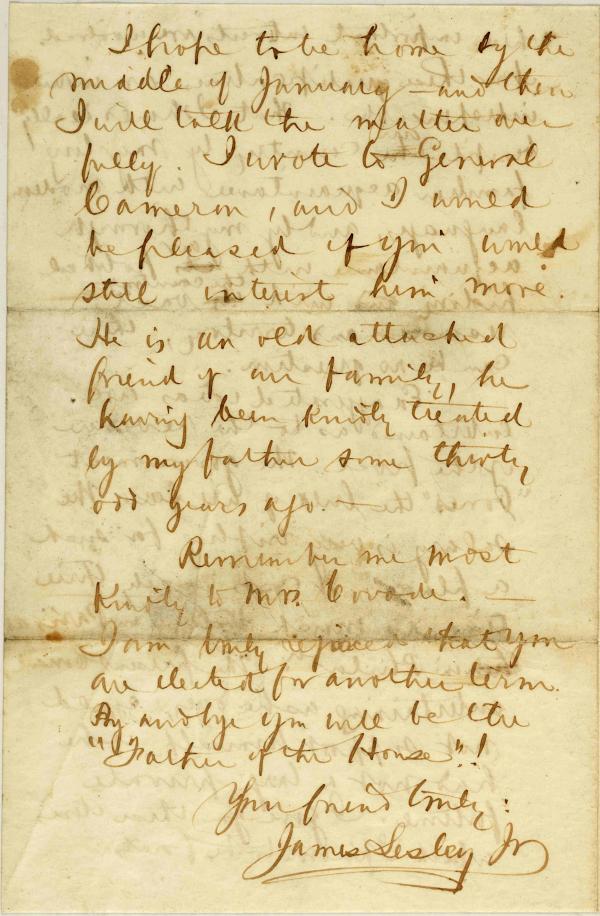 I hope to be home by the
middle of January — and then
I will talk the matter over
fully. I wrote to General
Cameron, and I would
be pleased if you would
still interest him more.
He is an old attached
friend of our family, he
having been kindly treated
by my father some thirty
odd years ago. —
Remember me most
Kindly to Mrs. Covode. —
I am truly rejoiced that you
are elected for another term.
By and bye you will be the
"Father of the House"!
Your friend truly:
James Lesley Jr